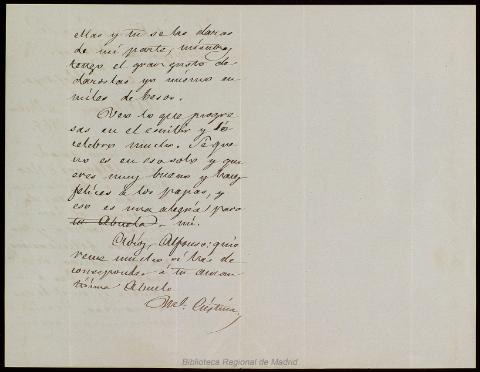 ellas y tu se las daras
de mi parte, mientras
tengo el gran gusto de
darostas yo misma en
miles de besos.
Veo lo que progre
sas en el escribir y lo
celebro mucho. Se que
no es en eso solo y que
eres muy bueno y haces
felices a los papas, y
eso es una alegria para
tu Abuela. mi.
Adios, Alfonso; quie
reme mucho si has de
corresponder á tu aman
tisima Abuela
Mª. Cristina
Biblioteca Regional de Madrid